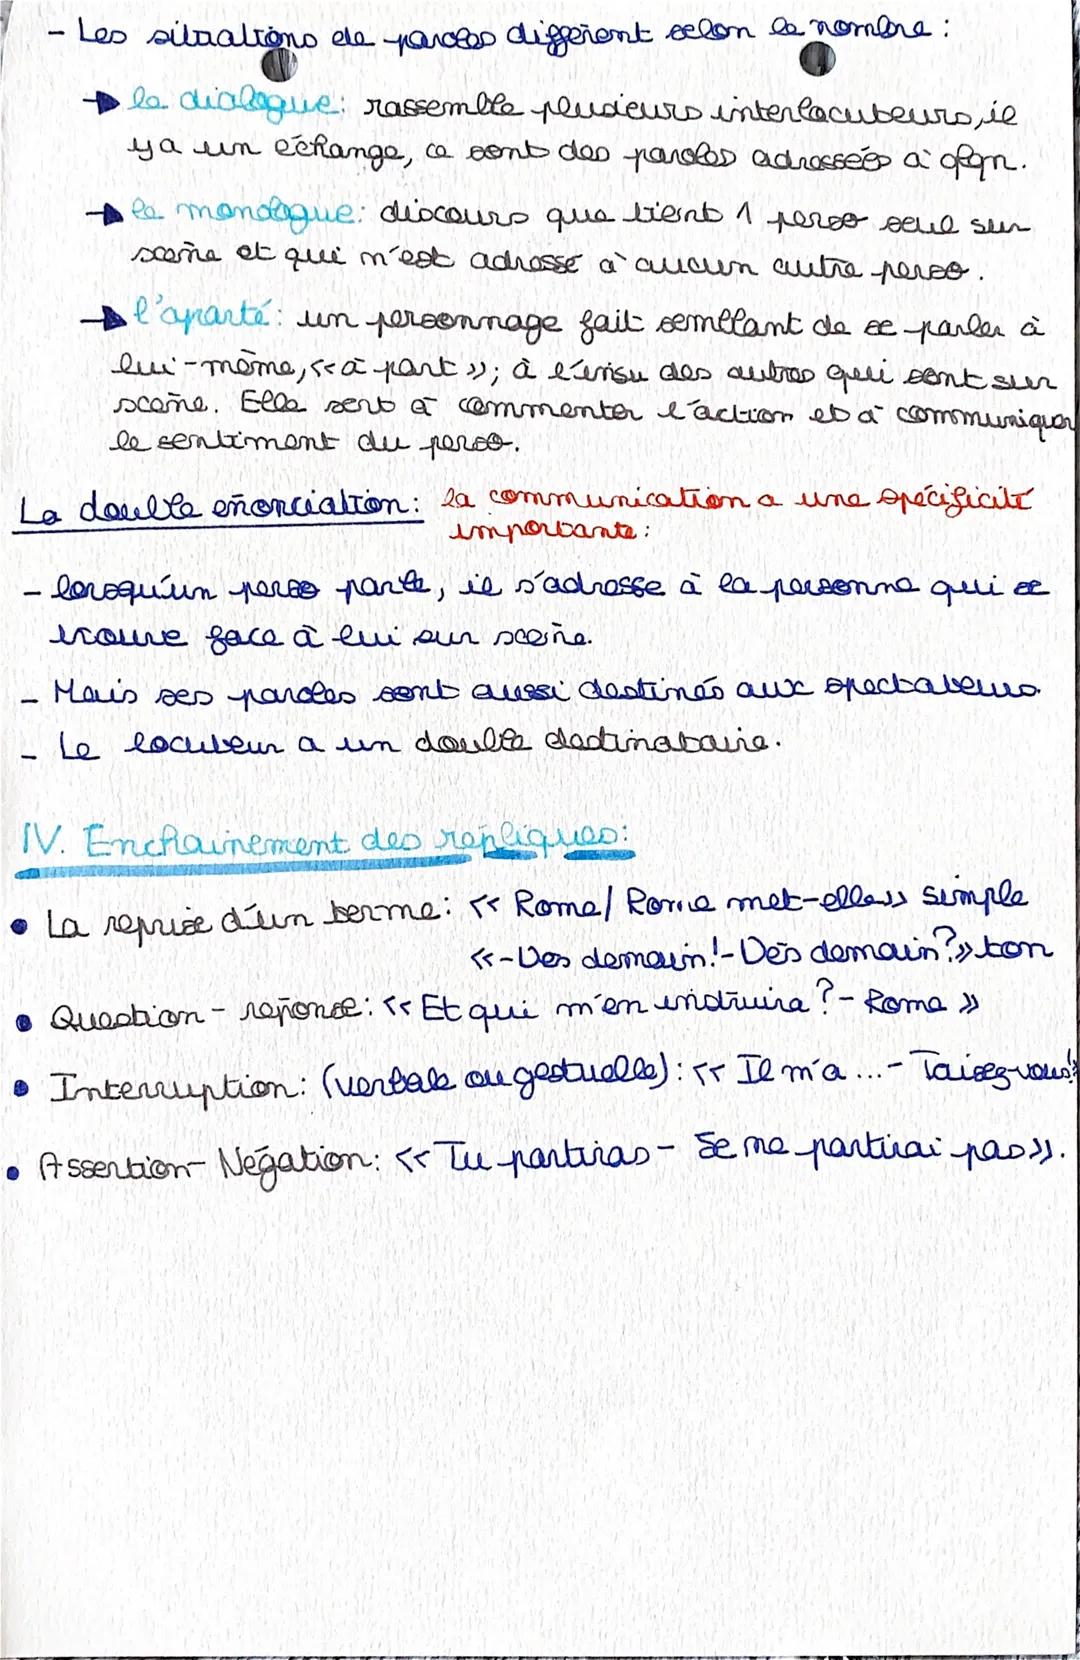 - Les situations de paroles diffèrent selon le nombre :
→ le dialogue : rassemble plusieurs interlocuteurs, il
y a un échange, ce sont des paroles adressées à qlqn.
→ le monologue : discours que tient 1 perso seul sur
scène et qui n'est adressé à aucun autre perso.
→ l'aparté : un personnage fait semblant de se parler à
lui-même, << à part >> ; à l'insu des autres qui sont sur
scène. Elle sert à commenter l'action et à communiquer
le sentiment du perso.
La double énonciation : la communication a une spécificité
importante :
- lorsqu'un perso parle, il s'adresse à la personne qui se
trouve face à lui sur scène.
- Mais ses paroles sont aussi destinés aux spectateurs.
- Le locuteur a un double destinataire.
IV. Enchainement des répliques :
• La reprise d'un terme : << Rome / Rome met-elle >> simple
<< - Dès demain ! - Dès demain ? >> ton
• Question - réponse : << Et qui m'en instruira ? - Rome >>
• Interruption : (verbale ou gestuelle) : << Il m'a ... - Taisez-vous !>>
• Assertion - Négation : << Tu partiras - Je ne partirai pas >>.